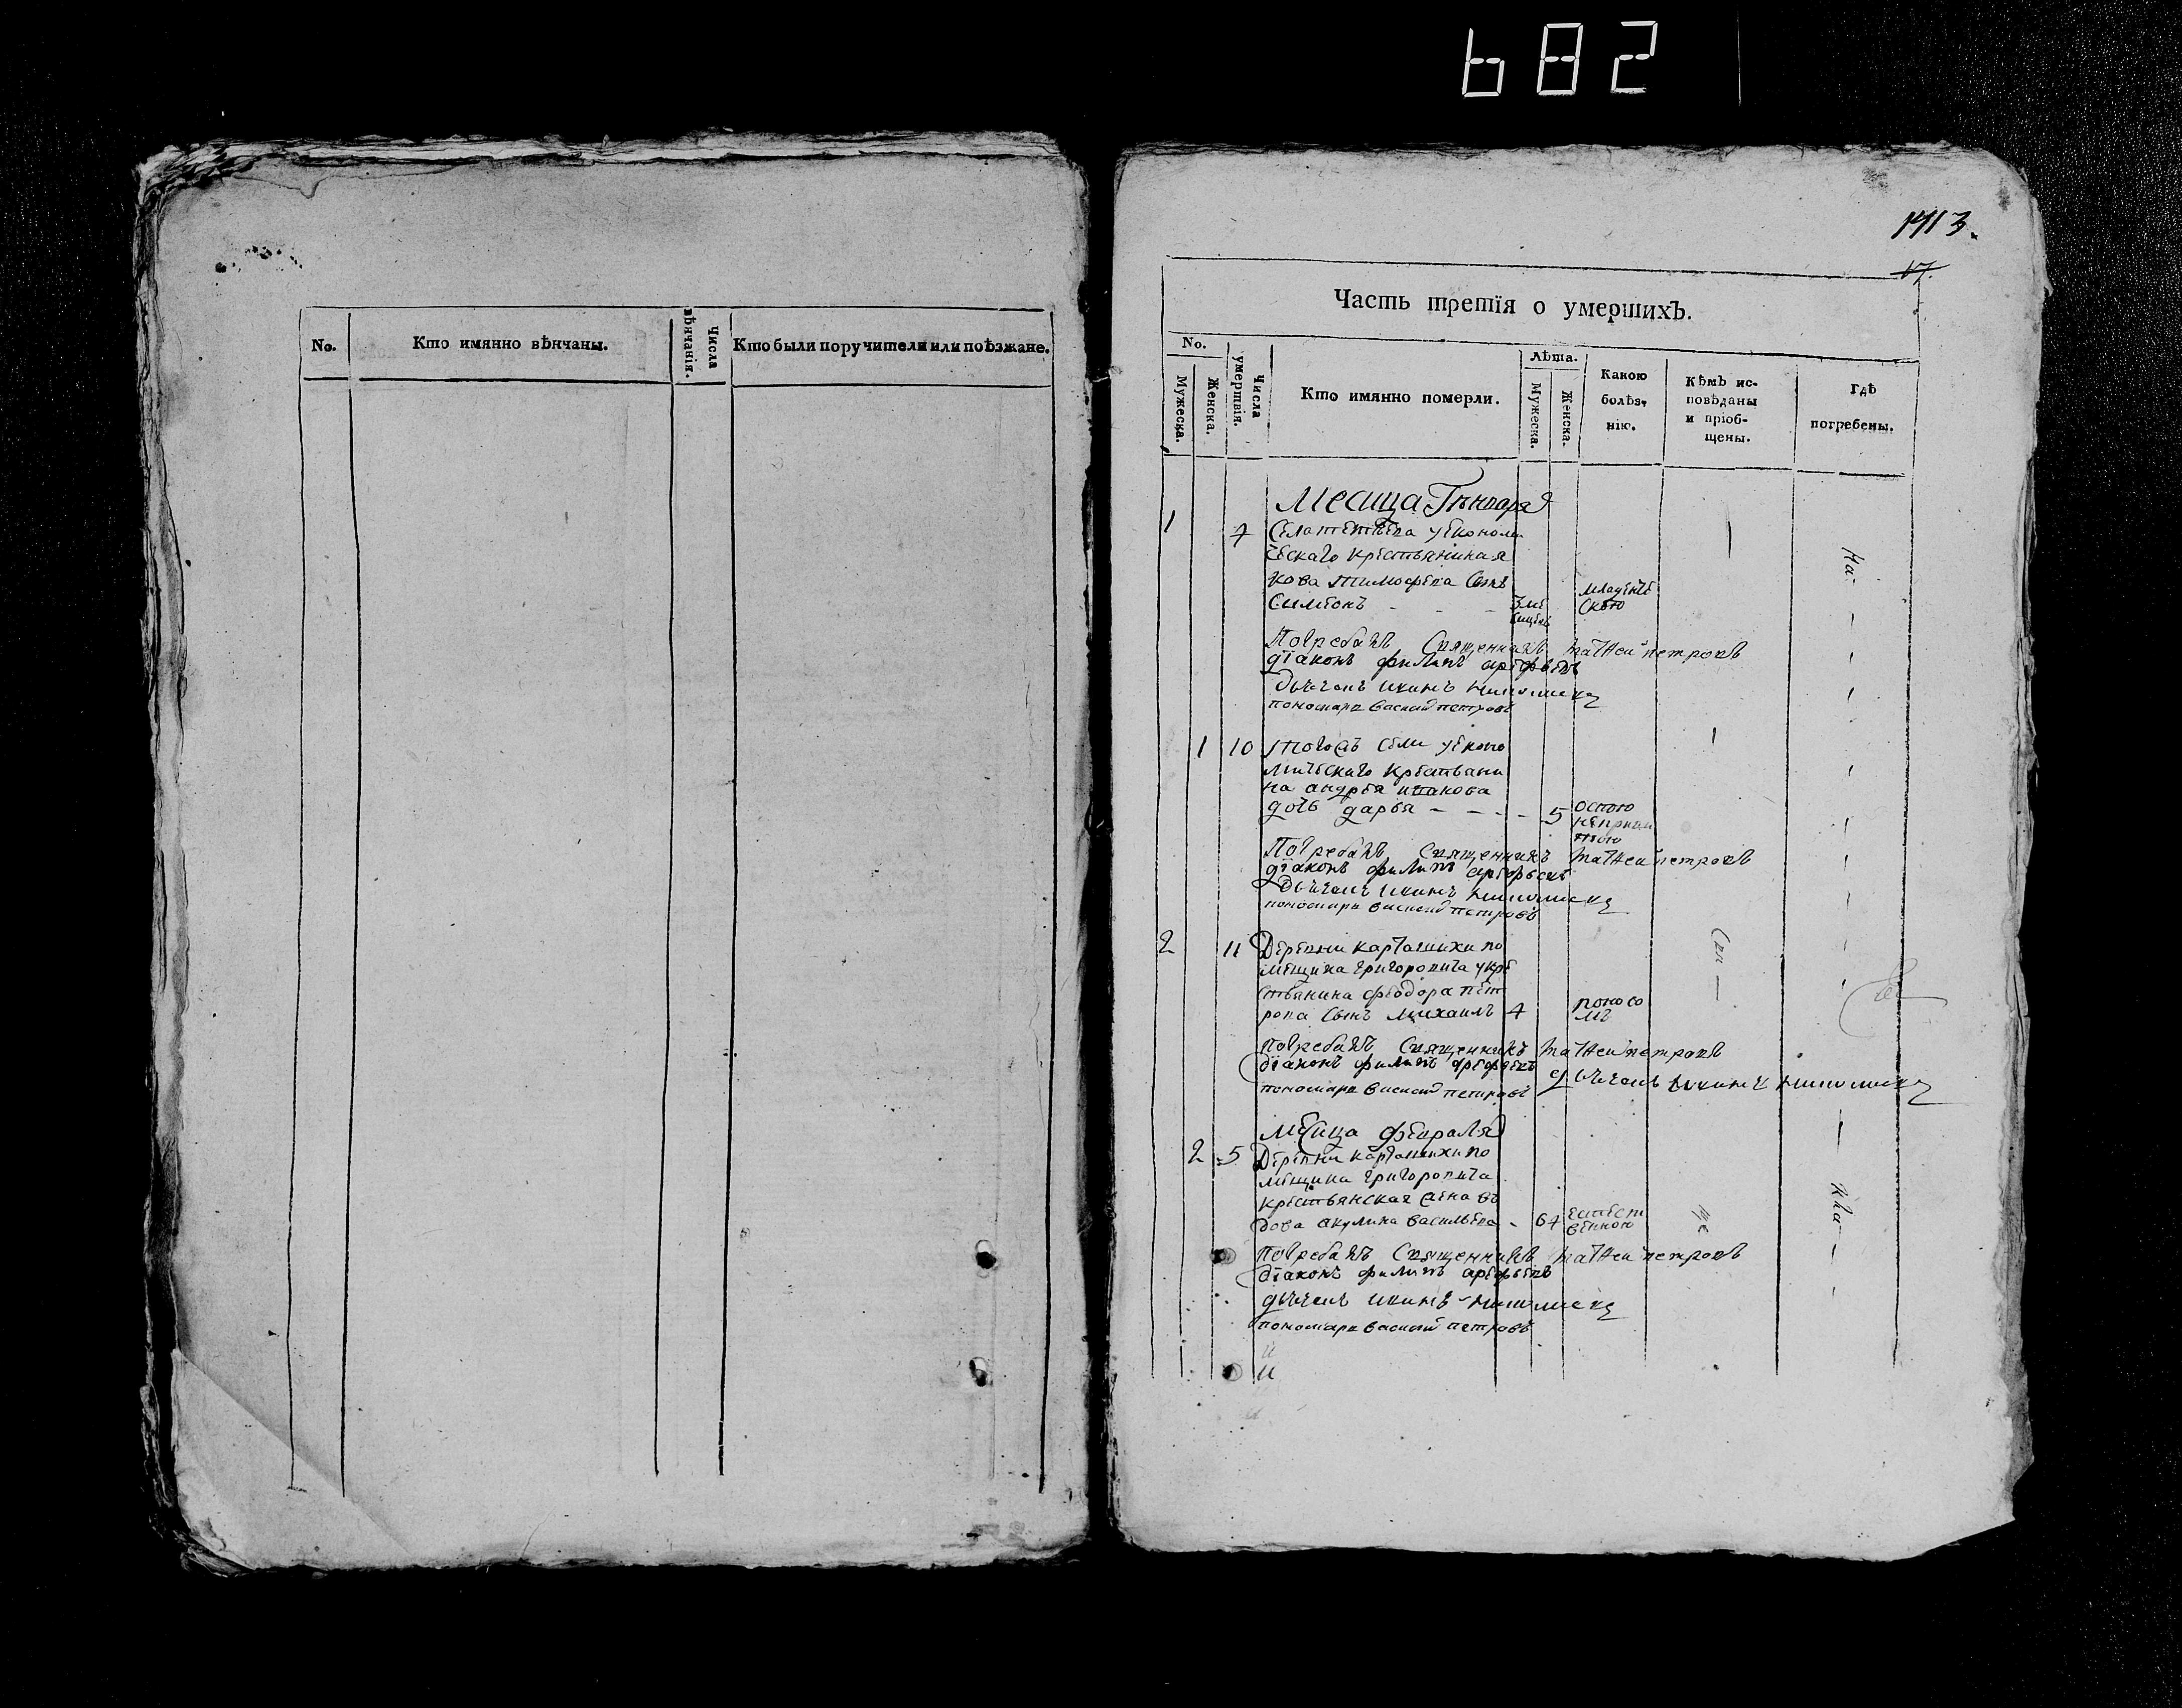 682
1413.
17.
No.
Кто имянно вѣнчаны.
Числа вѣнчанія.
Кто были поручители или поѣзжане.
Часть третія о умершихЪ.
No.
Мужеска.
Женска.
Числа умертвія.
Кто имянно померли.
Лѣта.
Мужеска.
Женска.
Какою болѣз-
нію.
КѢмЪ ис-
повѣданы
и пріоб-
щены.
ГдѢ
погребены.
Месица Генваря
1 7
ческаго крестьянина я
кова тимофѣева сынъ
Симеонъ
младенче
скою
На
Погребалъ Священникъ матѳеи петровъ
діаконъ филипъ арефьевъ
пономарь василий петровъ
1 10 Тогожъ села уконо
мическаго крестьяни
на андрея
дочь дарья - - - - 5 оспою
Погребалъ Священникъ матѳеи петровъ
діаконъ филипъ арефьевъ
пономарь василий петровъ
2 11 Деревни карташихи по
мещика григоровича укре
стьянина феодора пет
рова сынъ михаилъ 4 поносо
мъ
Погребалъ Священникъ матѳеи петровъ
діаконъ филипъ арефьевъ
пономарь василий петровъ
месица февраля
2 5 Деревни карташихи по
мещика григоровича
крестьянская жена в
дова акулина васильева - 67 естест
венною
Погребалъ Священникъ матѳеи петровъ
діаконъ филипъ арефьевъ
пономарь василий петровъ